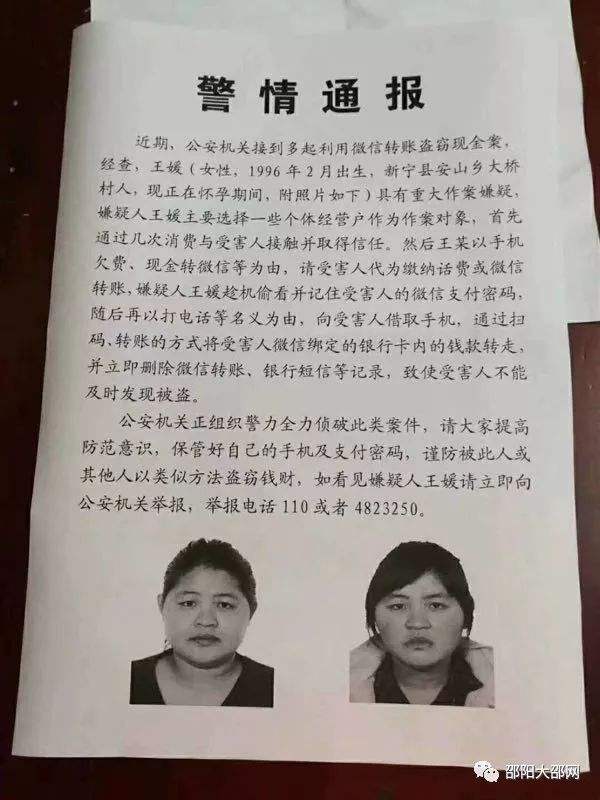 警情通报
近期，公安机关接到多起利用微信转账盗窃现金案，
经查，王媛（女性，1996年2月出生，新宁县安山乡大桥
村人，现正在怀孕期间，附照片如下）具有重大作案嫌疑，
嫌疑人王媛主要选择一些个体经营户作为作案对象，首先
通过几次消费与受害人接触并取得信任。然后王某以手机
欠费、现金转微信等为由，请受害人代为缴纳话费或微信
转账，嫌疑人王媛趁机偷看并记住受害人的微信支付密码，
随后再以打电话等名义为由，向受害人借取手机，通过扫
码、转账的方式将受害人微信绑定的银行卡内的钱款转走，
并立即删除微信转账、银行短信等记录，致使受害人不能
及时发现被盗。
公安机关正组织警力全力侦破此类案件，请大家提高
防范意识，保管好自己的手机及支付密码，谨防被此人或
其他人以类似方法盗窃钱财，如看见嫌疑人王媛请立即向
公安机关举报，举报电话110或者4823250。
邵阳大邵网